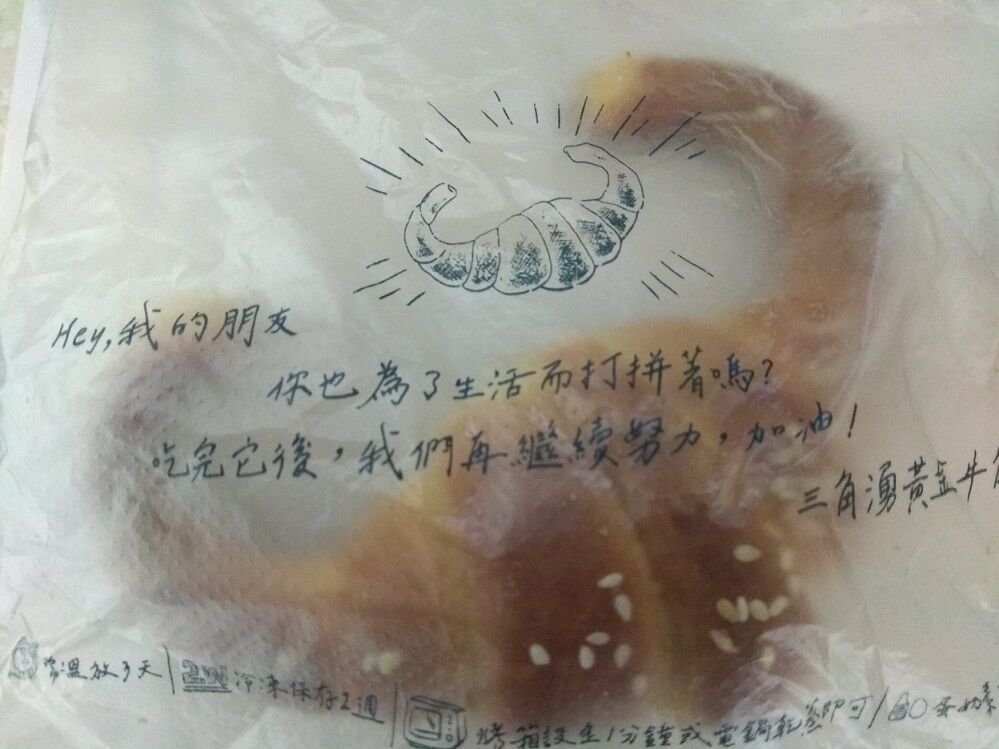 Hey,我的朋友
你也為了生活而打拼著嗎?
吃完它後,我們再繼續努力,加油!
三角湧黃金牛
常溫放3天
2W 冷凍保存2週
烤箱設定1分鐘或電鍋乾蒸即可/蛋奶素